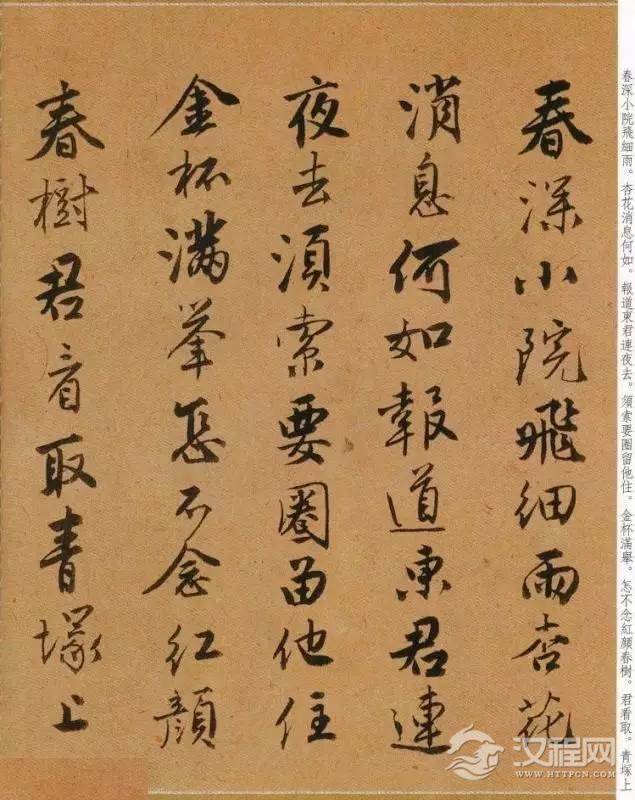 春深小院飛細雨杏花
消息何如報道東君連
夜去須索要圈留他住
金杯滿舉怎不念紅顏
春樹君看取青塚上
春深小院飛細雨。杏花消息何如。報道東君連夜去。須索要圈留他住。金杯滿舉。怎不念紅顏春樹。君看取。青塚上
汉程网
WWW.HTTPCN.COM